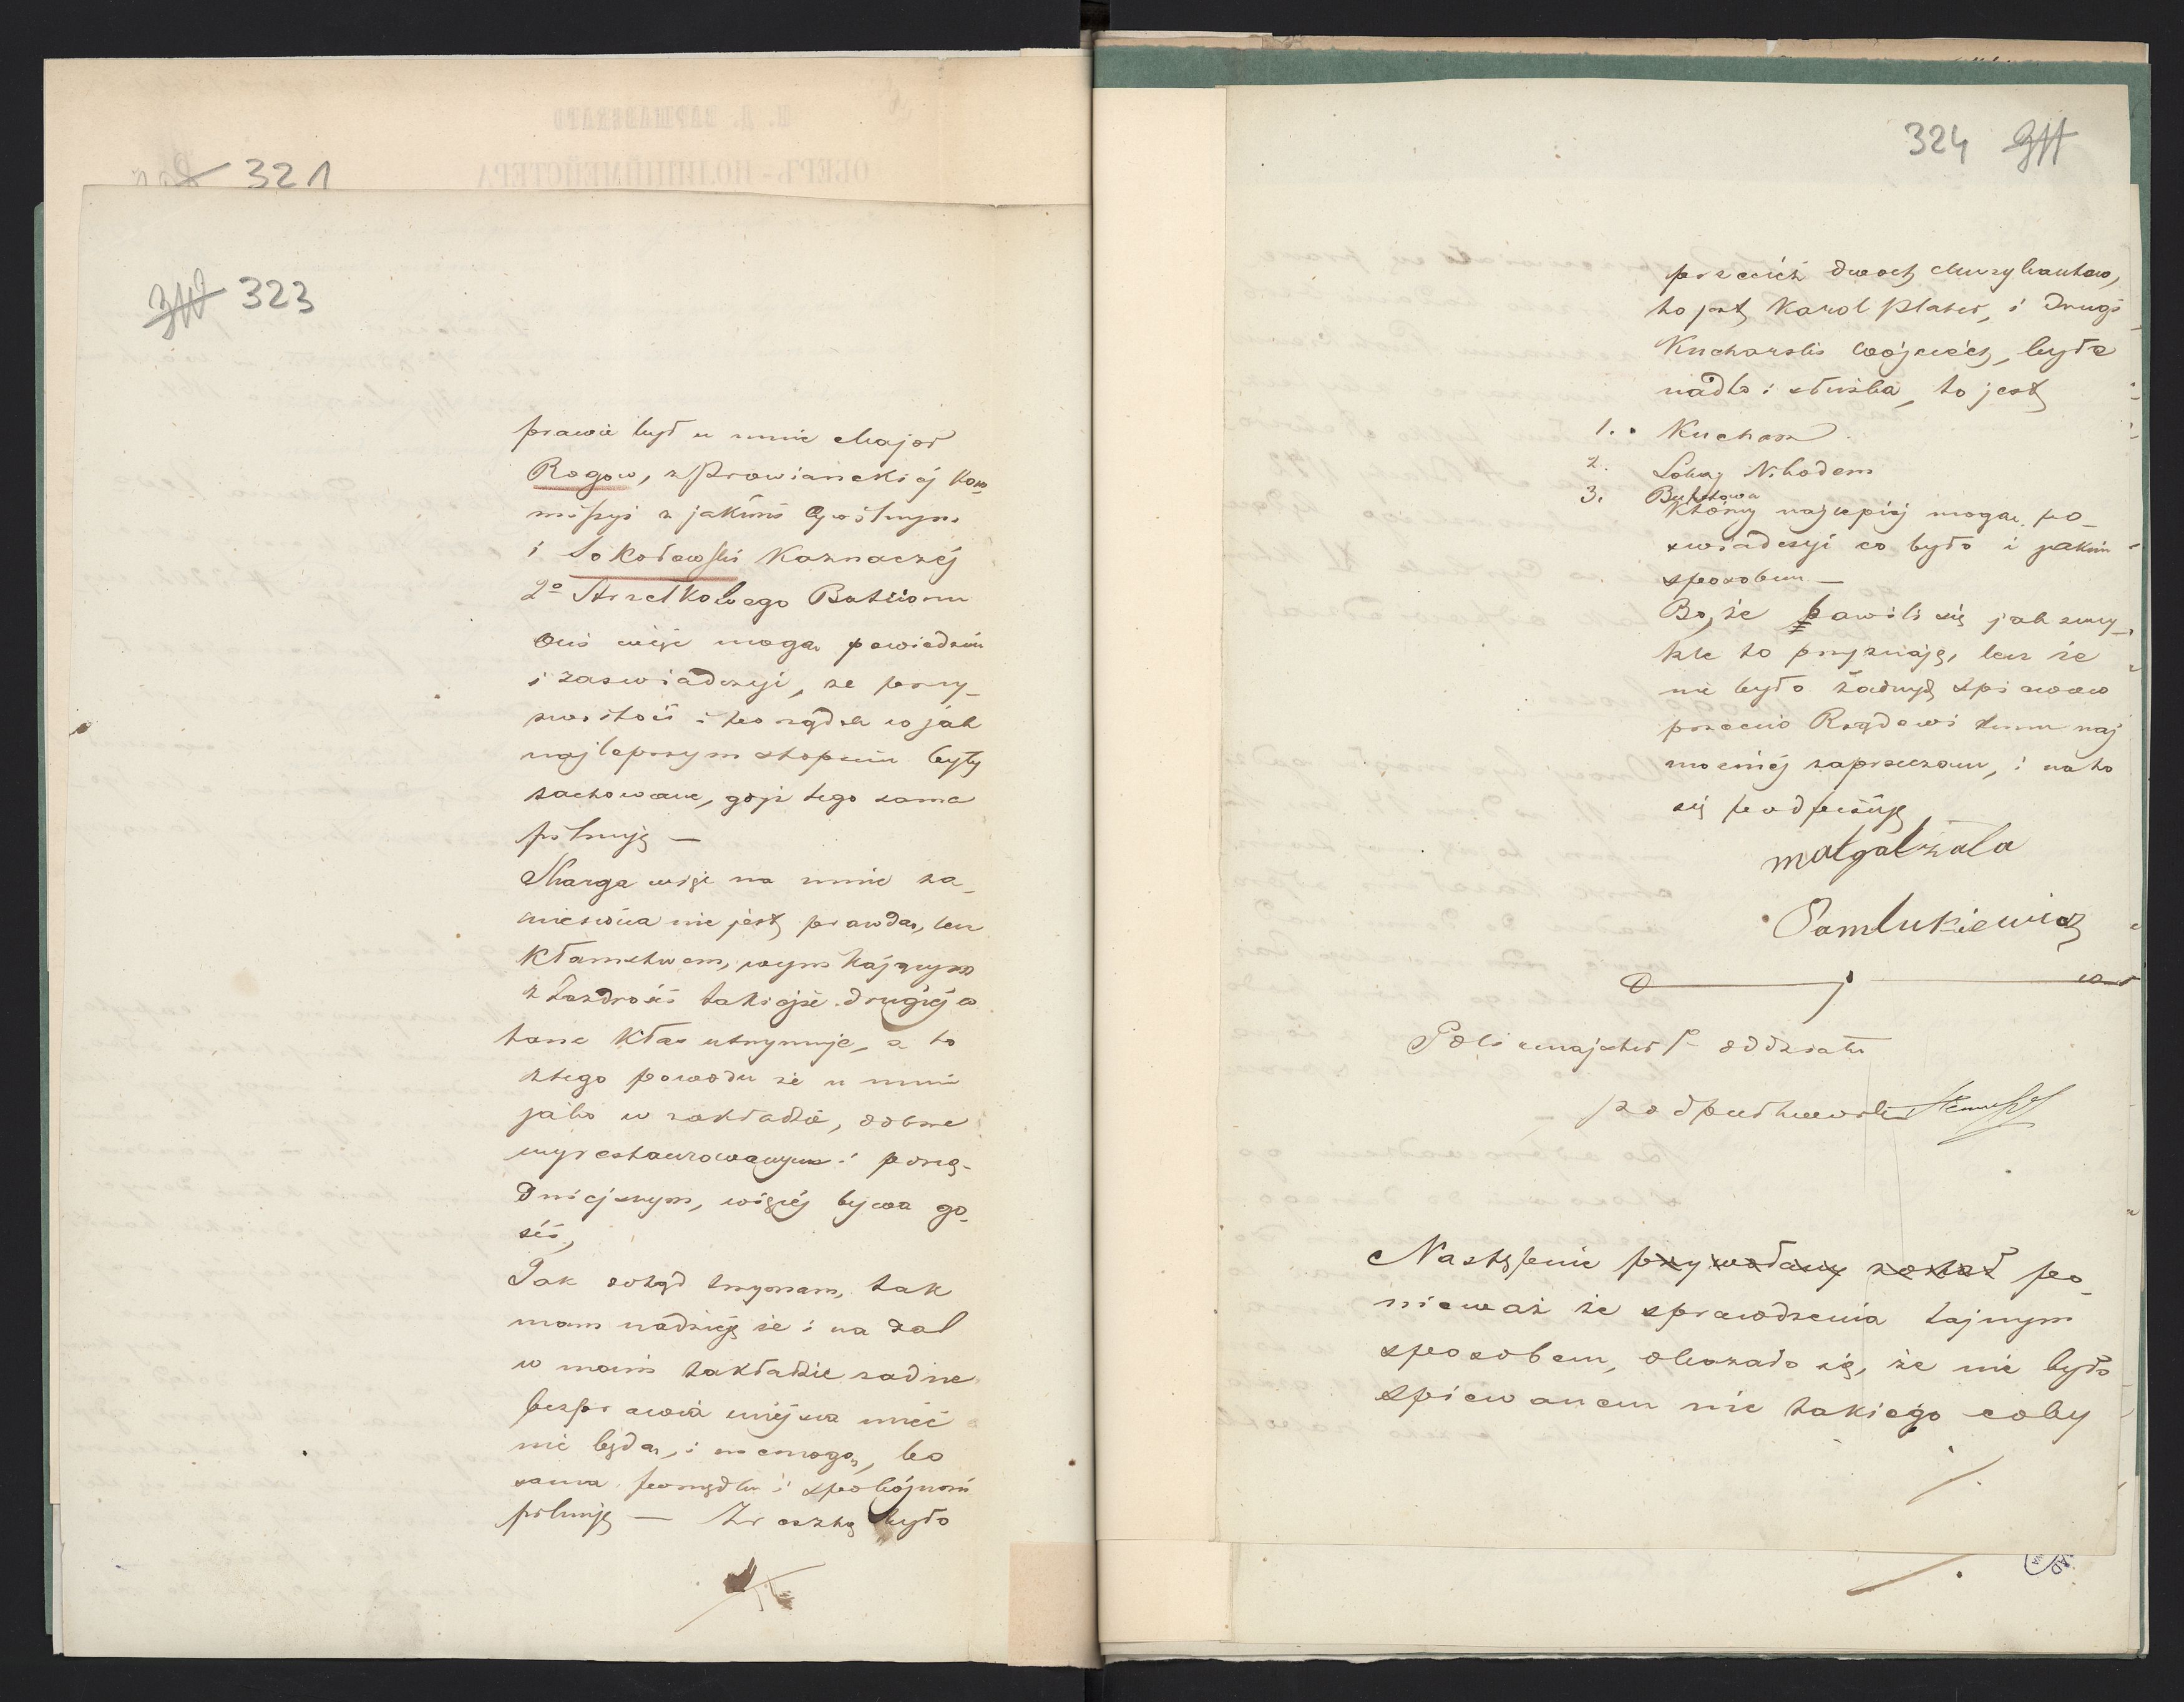 321
323
prawie był u mnie Major
Rogow, z Prowianckiéj Kom
misyi z jakimś Cywilnym
i Sokołowski Kaznaczéj
2º Strzelkowego Batlionu
Oni więc mogą powiedzieć
i zaswiadczyć, że przy-
zwoitość i porządek w jak
najlepszym stopniu były
zachowane, gdyż tego sama
pilnuję —
Skarga więc na mnie za-
niesióna nie jest prawdą, lecz
kłamstwem, wynikającym
z zazdrości takiejże drugiéj co
tanc klas utrzymuje, a to
z tego powodu że u mnie
jako w zakładzie, dobrze
wyrestaurowanym i porzą-
dniejszym, więcéj bywa go-
ści,
Jak dotąd trzymam, tak
mam nadzieję że i na dal
w moim zakładzie żadne
bezprawia miejsca mieć
nie będą, i nie mogą, bo
sama porządku i spokójności
pilnuję — Zresztą było
324
przecież dwoch Muzykantow,
to jest Karol Plater, i drugi
Kucharski Wojciech, była
nadto i służba, to jest
1. Kucharz
2. Lokaj Nikodem
3. Bufetowa
Którzy najlepiéj mogą po-
swiadczyć co było i jakim
sposobem —
Bo, że bawili się jak zwy-
kle to przyznaję, lecz że
nie było żadnych spiewow
przeciw Rządowi temu naj
mocniéj zaprzeczam, i na to
się podpisuję
małgalzata
Pamlukiewicz
Policmajster I oddziału
podpułkownik
Następnie przywołany został po-
nieważ ze sprawdzenia tajnym
sposobem, okazało się, że nie było
spiewanem nic takiego coby